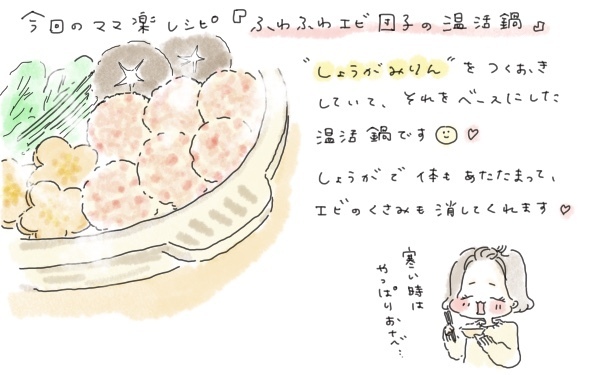 今日のママ楽レシピ『ふわふわエビ団子の温活鍋』
"しょうがみりん"をつくおき
していて、それをベースにした
温活鍋です
しょうがで体もあたたまって、
エビのくさみも消してくれます
寒い時は
やっぱりおなべ…